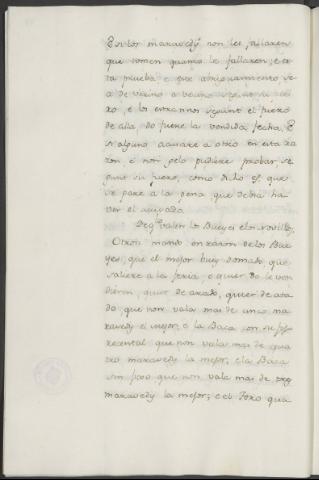 E si los maravedis non les fallaren
que tomen quanto le fallaren; e es
ta prueba e que atesiguamiento se
a de vecino a vecino segunt su
xo, e los estrannos segunt el fuero
de alla, do fuere la vendida fecha. E
si alguno acusare a otro en esta ra
zon e non gelo pudiere probar se
gunt su fuero, como dicho es, que
se pare a la pena que debia ha
ver el acusado
De q.º valan los Bueyes e los novillos
Otrosi mando en razon de los Bue
yes, que el mejor buey domado que
saliere a la feria, e quier do le ven
dieren, quier de arado, quier de ata
do, que non vala mas de cinco ma
ravedis el mejor, e la Baca con su
terental que non vala mas de qua
tro maravedis la mejor, e la Baca
sin fijo que non vale mas de tres
maravedis la mejor; e el Toro qua